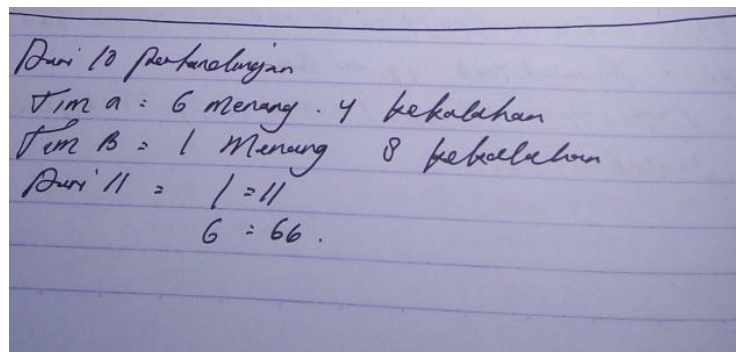 Dari 10 pertandingan
Tim a = 6 menang . 4 kekalahan
Tim B = 1 Menang 8 kekalahan
Dari 11 = 1 = 11
6 = 66 .